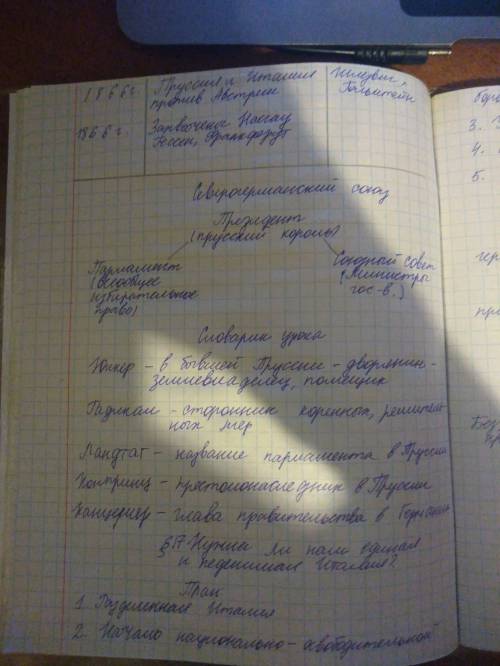 1866 г. Пруссия и Италия Шлезвиг,
против Австрии Гольштейн
1866 г. Захвачены Нассау
Гессен, Франкфурт
Северогерманский союз
Президент
(прусский король)
Парламент Союзный совет
(всеобщее (Министры
избирательное гос-в.)
право)
Словарик урока
Юнкер - в бывшей Пруссии - дворянин-
землевладелец, помещик
Радикал - сторонник коренных, решитель
ных мер
Ландтаг - название парламента в Пруссии
Конпринц - престолонаследник в Пруссии
Канцлер - глава правительства в Германии
§17 Нужна ли нам единая
и неделимая Италия?
План
1. Разделенная Италия
2. Начало национально-освободительной
3.
4.
5.
гер
пра
Без